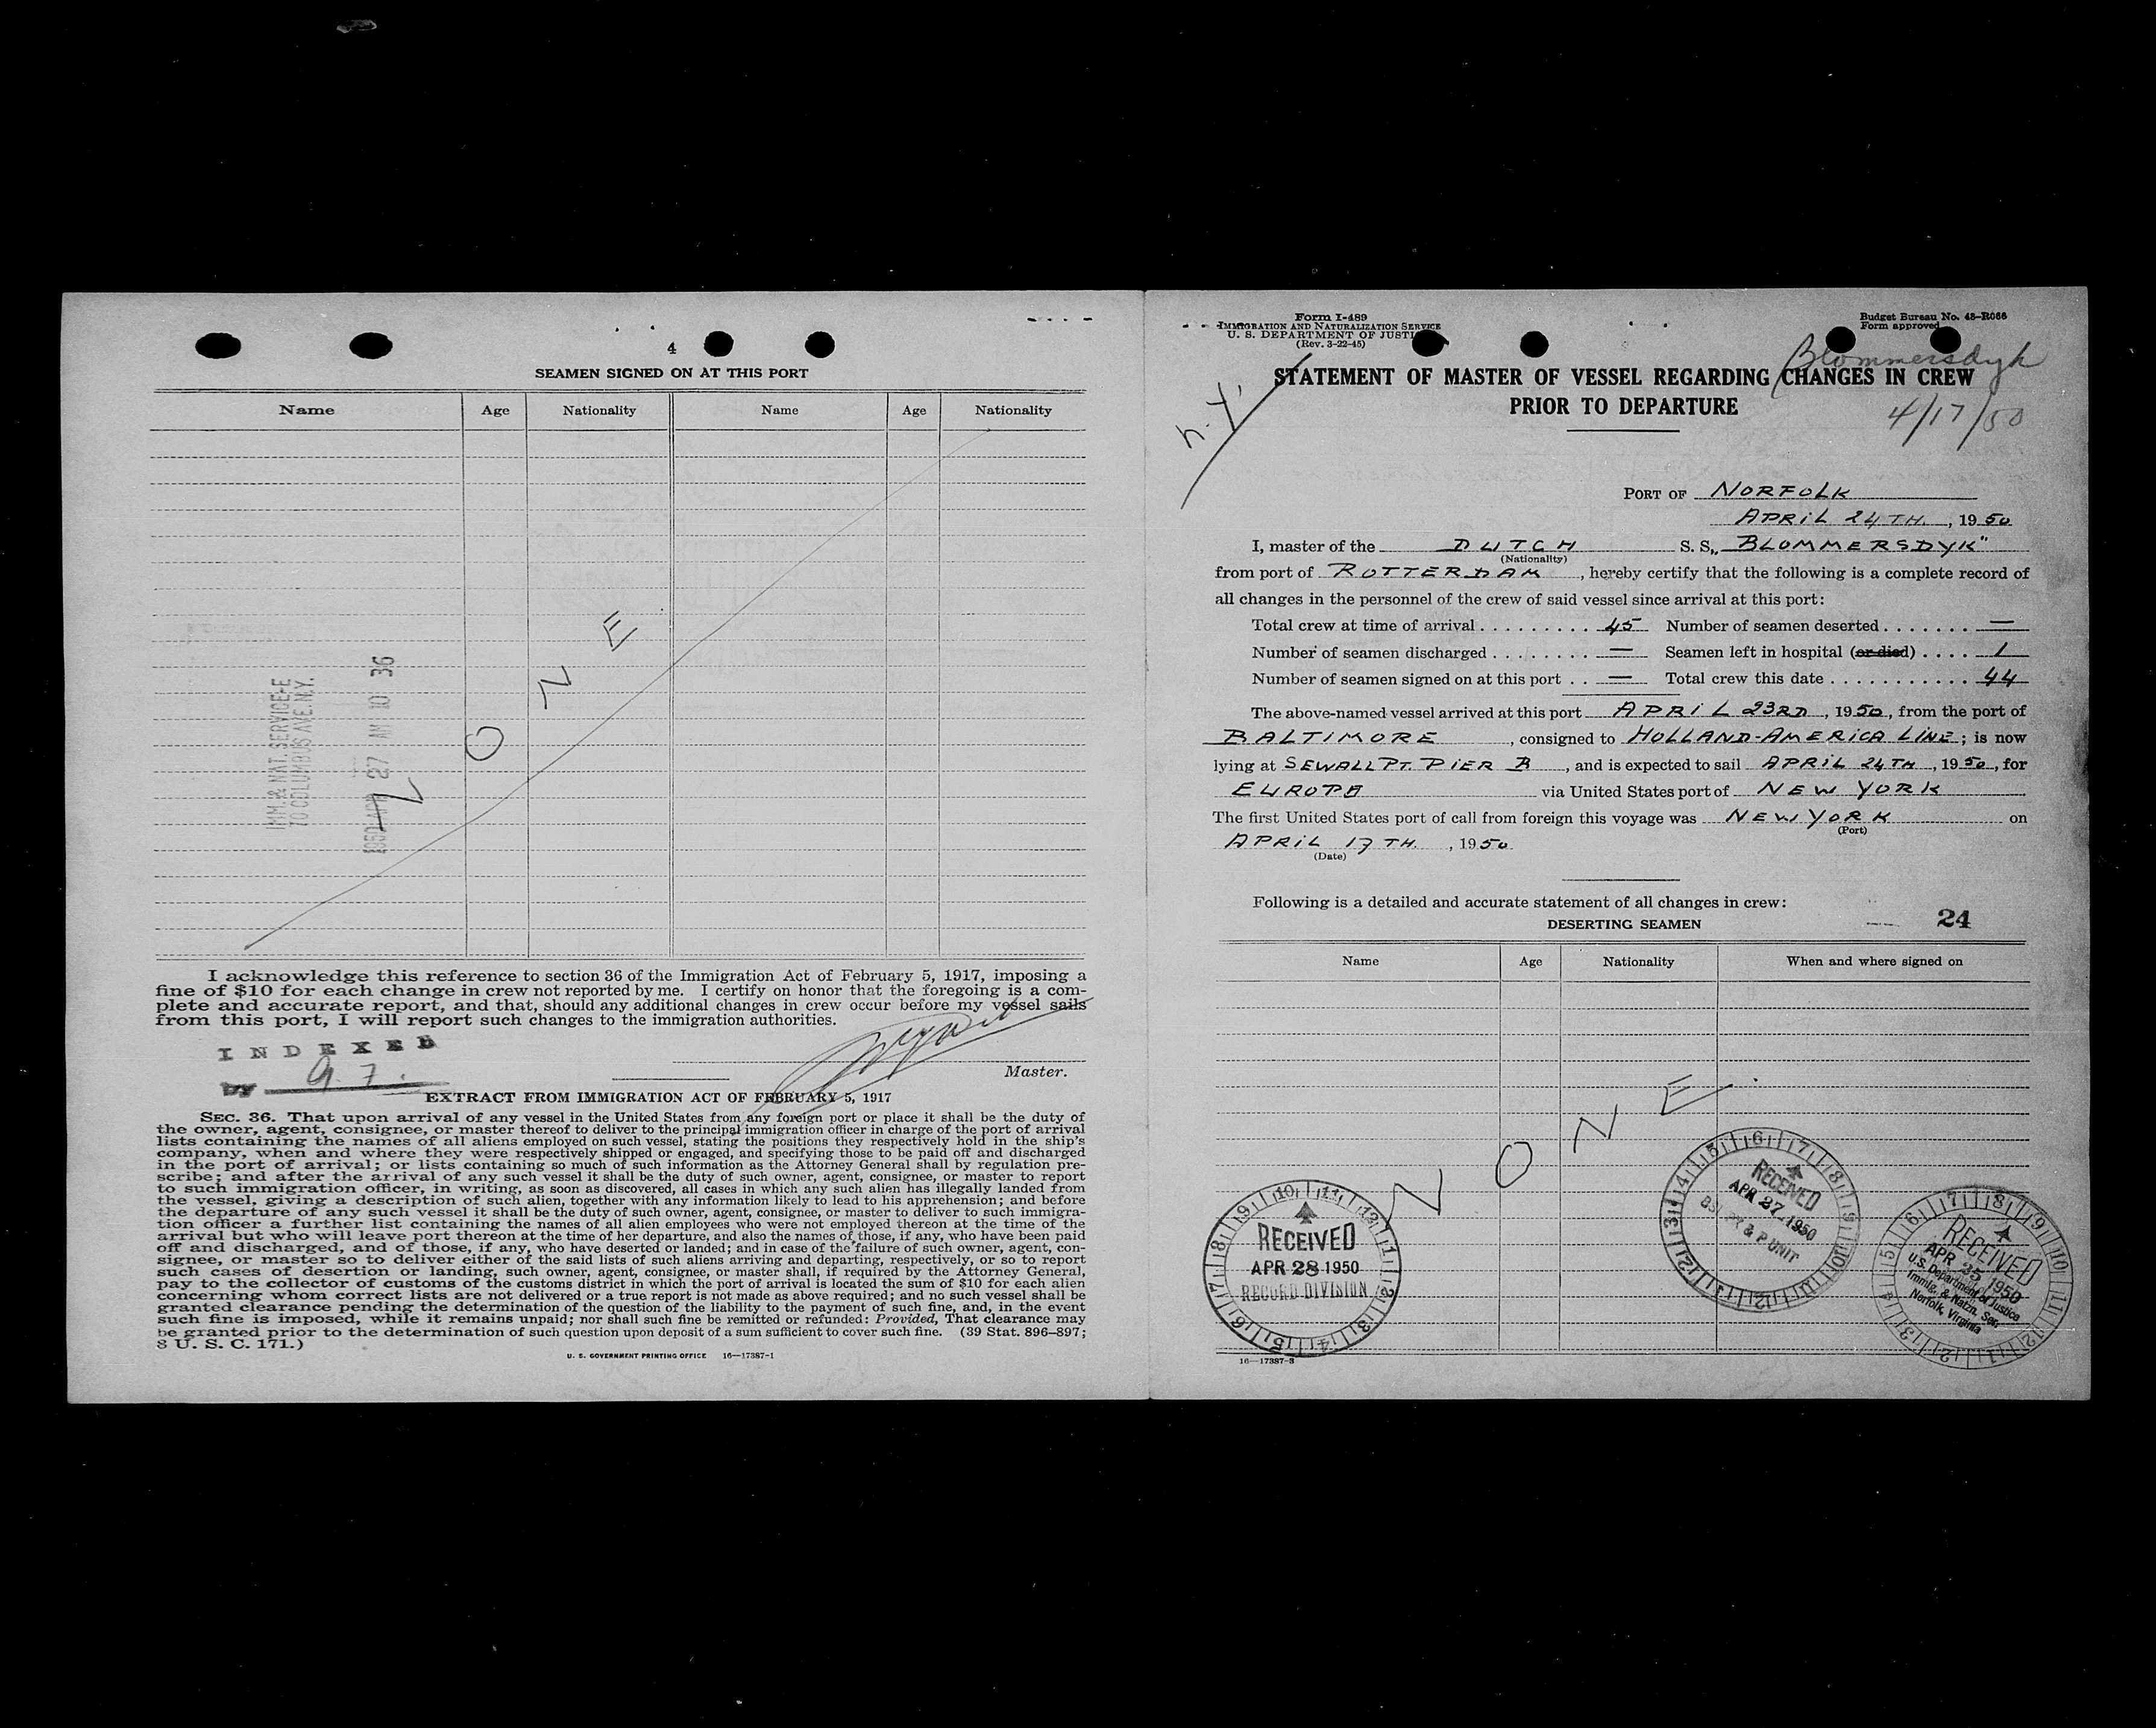 4
SEAMEN SIGNED ON AT THIS PORT
Name Age Nationality Name Age Nationality
NONE
IMM. & NAT. SERVICE-E
70 COLUMBUS AVE. N.Y.
1950 APR 27 AM 10 36
I acknowledge this reference to section 36 of the Immigration Act of February 5, 1917, imposing a
fine of $10 for each change in crew not reported by me. I certify on honor that the foregoing is a com-
plete and accurate report, and that, should any additional changes in crew occur before my vessel sails
from this port, I will report such changes to the immigration authorities.
INDEXED
by
Master.
EXTRACT FROM IMMIGRATION ACT OF FEBRUARY 5, 1917
SEC. 36. That upon arrival of any vessel in the United States from any foreign port or place it shall be the duty of
the owner, agent, consignee, or master thereof to deliver to the principal immigration officer in charge of the port of arrival
lists containing the names of all aliens employed on such vessel, stating the positions they respectively hold in the ship's
company, when and where they were respectively shipped or engaged, and specifying those to be paid off and discharged
in the port of arrival; or lists containing so much of such information as the Attorney General shall by regulation pre-
scribe; and after the arrival of any such vessel it shall be the duty of such owner, agent, consignee, or master to report
to such immigration officer, in writing, as soon as discovered, all cases in which any such alien has illegally landed from
the vessel, giving a description of such alien, together with any information likely to lead to his apprehension; and before
the departure of any such vessel it shall be the duty of such owner, agent, consignee, or master to deliver to such immigra-
tion officer a further list containing the names of all alien employees who were not employed thereon at the time of the
arrival but who will leave port thereon at the time of her departure, and also the names of those, if any, who have been paid
off and discharged, and of those, if any, who have deserted or landed; and in case of the failure of such owner, agent, con-
signee, or master so to deliver either of the said lists of such aliens arriving and departing, respectively, or so to report
such cases of desertion or landing, such owner, agent, consignee, or master shall, if required by the Attorney General,
pay to the collector of customs of the customs district in which the port of arrival is located the sum of $10 for each alien
concerning whom correct lists are not delivered or a true report is not made as above required; and no such vessel shall be
granted clearance pending the determination of the question of the liability to the payment of such fine, and, in the event
such fine is imposed, while it remains unpaid; nor shall such fine be remitted or refunded: Provided, That clearance may
be granted prior to the determination of such question upon deposit of a sum sufficient to cover such fine. (39 Stat. 896–897;
8 U. S. C. 171.)
U. S. GOVERNMENT PRINTING OFFICE 16—17387-1
Form I-489
IMMIGRATION AND NATURALIZATION SERVICE
U. S. DEPARTMENT OF JUSTI
(Rev. 3-22-45)
Budget Bureau No. 43–R066
Form approved
n. y.
Blommersdyk
STATEMENT OF MASTER OF VESSEL REGARDING CHANGES IN CREW
PRIOR TO DEPARTURE
4/17/50
PORT OF NORFOLK
APRIL 24TH, 1950
I, master of the DUTCH S. S. „BLOMMERSDYK"
(Nationality)
from port of ROTTERDAM, hereby certify that the following is a complete record of
all changes in the personnel of the crew of said vessel since arrival at this port:
Total crew at time of arrival . . . . . . . . . 45 Number of seamen deserted . . . . . . . —
Number of seamen discharged . . . . . . . . — Seamen left in hospital (or died) . . . . 1
Number of seamen signed on at this port . . — Total crew this date . . . . . . . . . . . . 44
The above-named vessel arrived at this port APRIL 23RD, 1950, from the port of
BALTIMORE, consigned to HOLLAND-AMERICA LINE; is now
lying at SEWALL PT. PIER B, and is expected to sail APRIL 24TH, 1950, for
EUROPE via United States port of NEW YORK
The first United States port of call from foreign this voyage was NEW YORK on
(Port)
APRIL 17TH, 1950
(Date)
Following is a detailed and accurate statement of all changes in crew:
DESERTING SEAMEN
24
Name Age Nationality When and where signed on
NONE
RECEIVED
APR 28 1950
RECORD DIVISION
RECEIVED
APR 27 1950
& P UNIT
RECEIVED
APR 25 1950
U.S. Department of Justice
Immig. & Natzn. Ser.
Norfolk, Virginia
16—17387-3